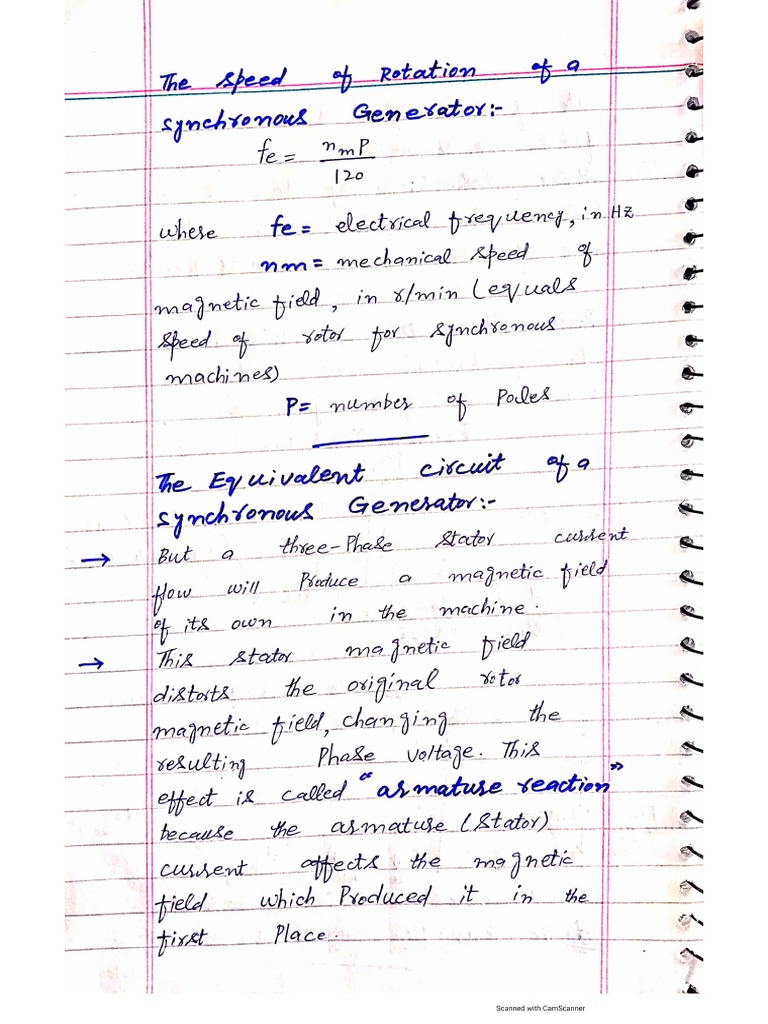 The Speed of Rotation of a
Synchronous Generator:-
fe = nmP / 120
where fe = electrical frequency, in Hz
nm = mechanical speed of
magnetic field, in r/min (equals
speed of rotor for synchronous
machines)
P = number of Poles
The Equivalent circuit of a
Synchronous Generator:-
→ But a three-Phase stator current
flow will Produce a magnetic field
of its own in the machine.
→ This stator magnetic field
distorts the original rotor
magnetic field, changing the
resulting Phase voltage. This
effect is called "armature reaction"
because the armature (stator)
current affects the magnetic
field which Produced it in the
first Place.
Scanned with CamScanner